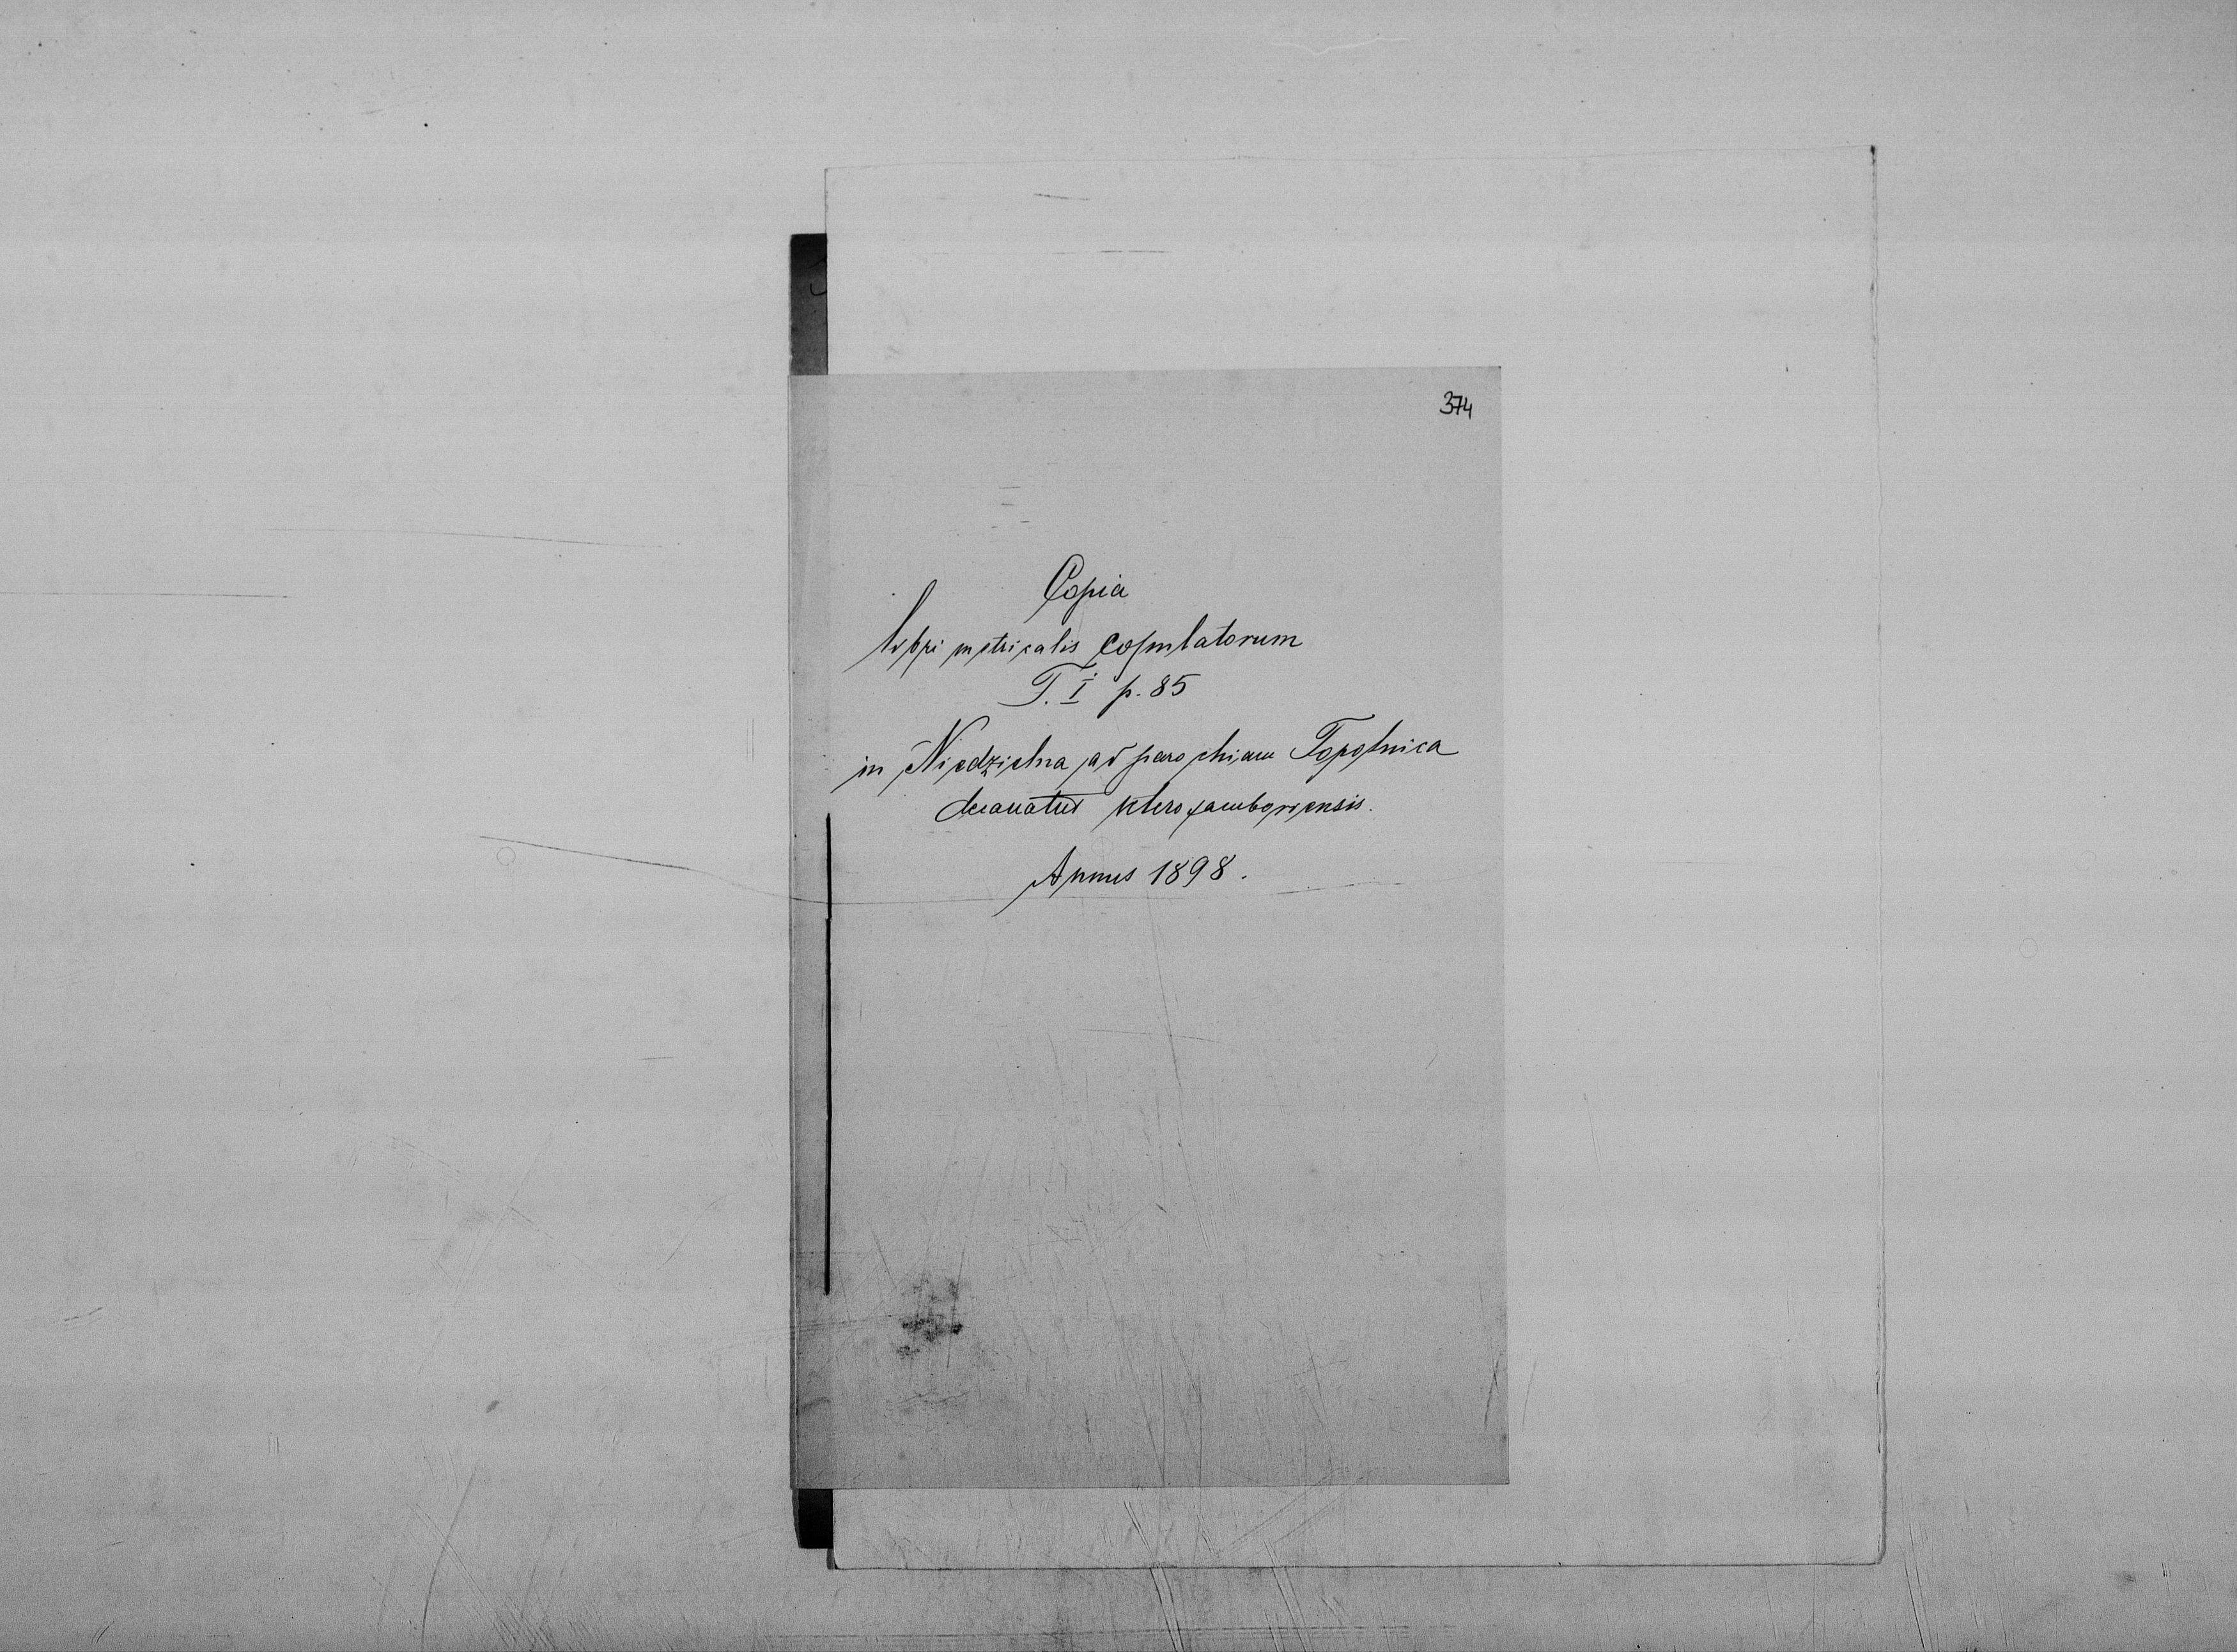 374
Copia
libri metricalis copulatorum
T. I p. 85
in Niedzielna ad parochiam Topolnica
decanatus Sterosamboriensis.
Annus 1898.